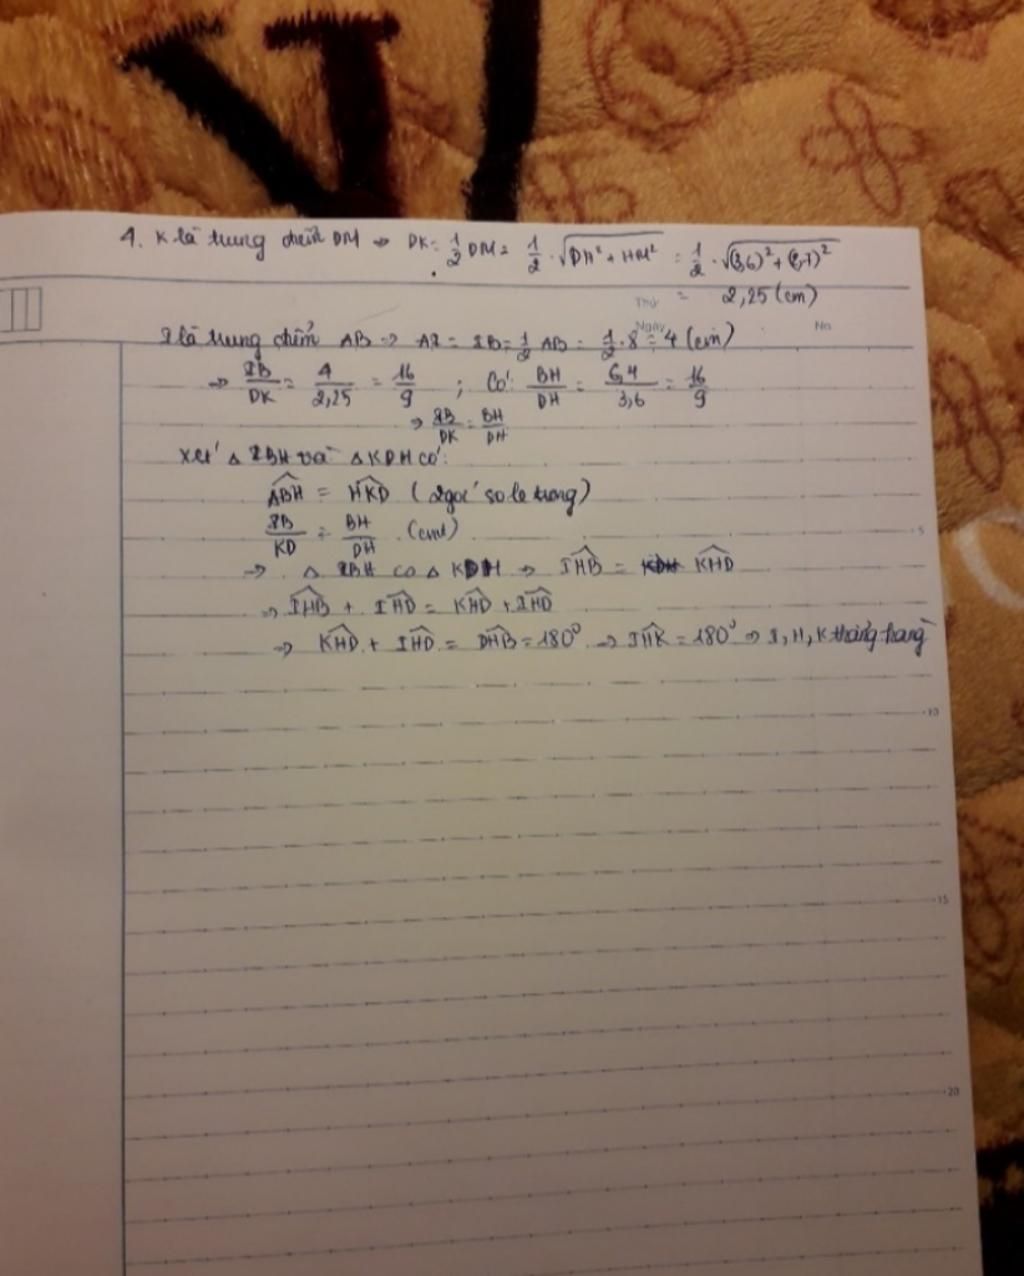 4. K là trung điểm DM => DK = 1/2 DM = 1/2 . √(DH² + HM²) = 1/2 . √((3,6)² + (2,7)²)
Thứ
= 2,25 (cm)
Ngày
No
I là trung điểm AB => AI = IB = 1/2 AB = 1/2 . 8 = 4 (cm)
=> IB/DK = 4/2,25 = 16/9 ; Có: BH/DH = 6,4/3,6 = 16/9
=> IB/DK = BH/DH
Xét △ IBH và △KDH có:
ABH = HKD (2 góc so le trong)
IB/KD = BH/DH (cmt)
=> △ IBH ∽ △ KDH => IHB = KHD
=> IHB + IHD = KHD + IHD
=> KHD + IHD = DHB = 180° => IHK = 180° => I, H, K thẳng hàng
5
10
15
20